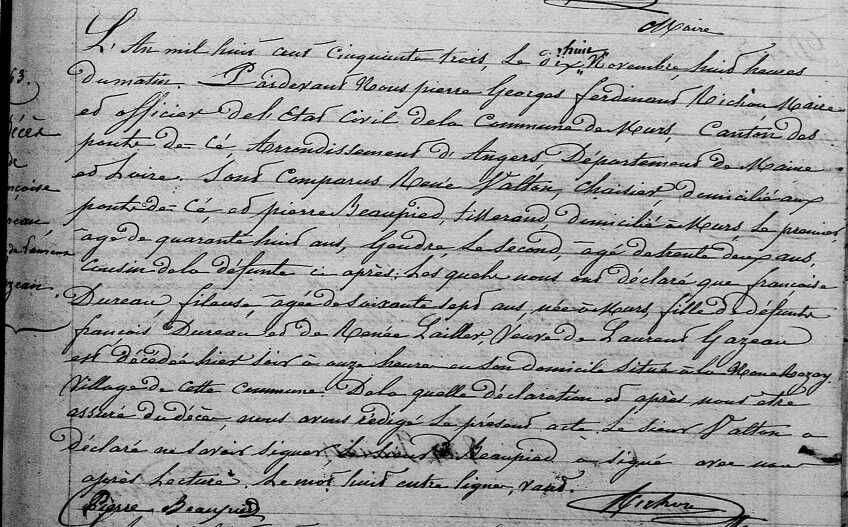 Maire
L'An mil huit cent Cinquante trois, Le dix huit Novembre, huit heures
Du matin. Pardevant Nous pierre Georges ferdinand Richou Maire
et officier de l'Etat Civil de la Commune de Murs, Canton des
ponts-de-Cé, Arrondissement d'Angers Département de Maine
et Loire. Sont Comparus René Valton, Chaisier, domicilié aux
ponts-de-Cé et pierre Beaupied, tisserand, domicilié à Murs, Le premier
âgé de quarante huit ans, Gendre, Le Second, âgé de trente deux ans,
Cousin de la défunte ci après: Lesquels nous ont déclaré que françoise
Dureau fileuse âgée de soixante sept ans, née à Murs, fille de défunts
françois Dureau et de Renée Lailler, Veuve de Laurent Gazeau
est décédée hier soir à onze heures en son domicile situé à la
Village de cette commune. De la quelle déclaration et après nous être
assuré du décès, nous avons rédigé Le présent acte. Le sieur Valton a
Déclaré ne savoir signer, Le sieur Beaupied a signé avec nous
après Lecture. Le mot huit entre ligne, vaut.
Pierre Beaupied Richou
63.
décès
de
nçoise
reau
de
zeau.